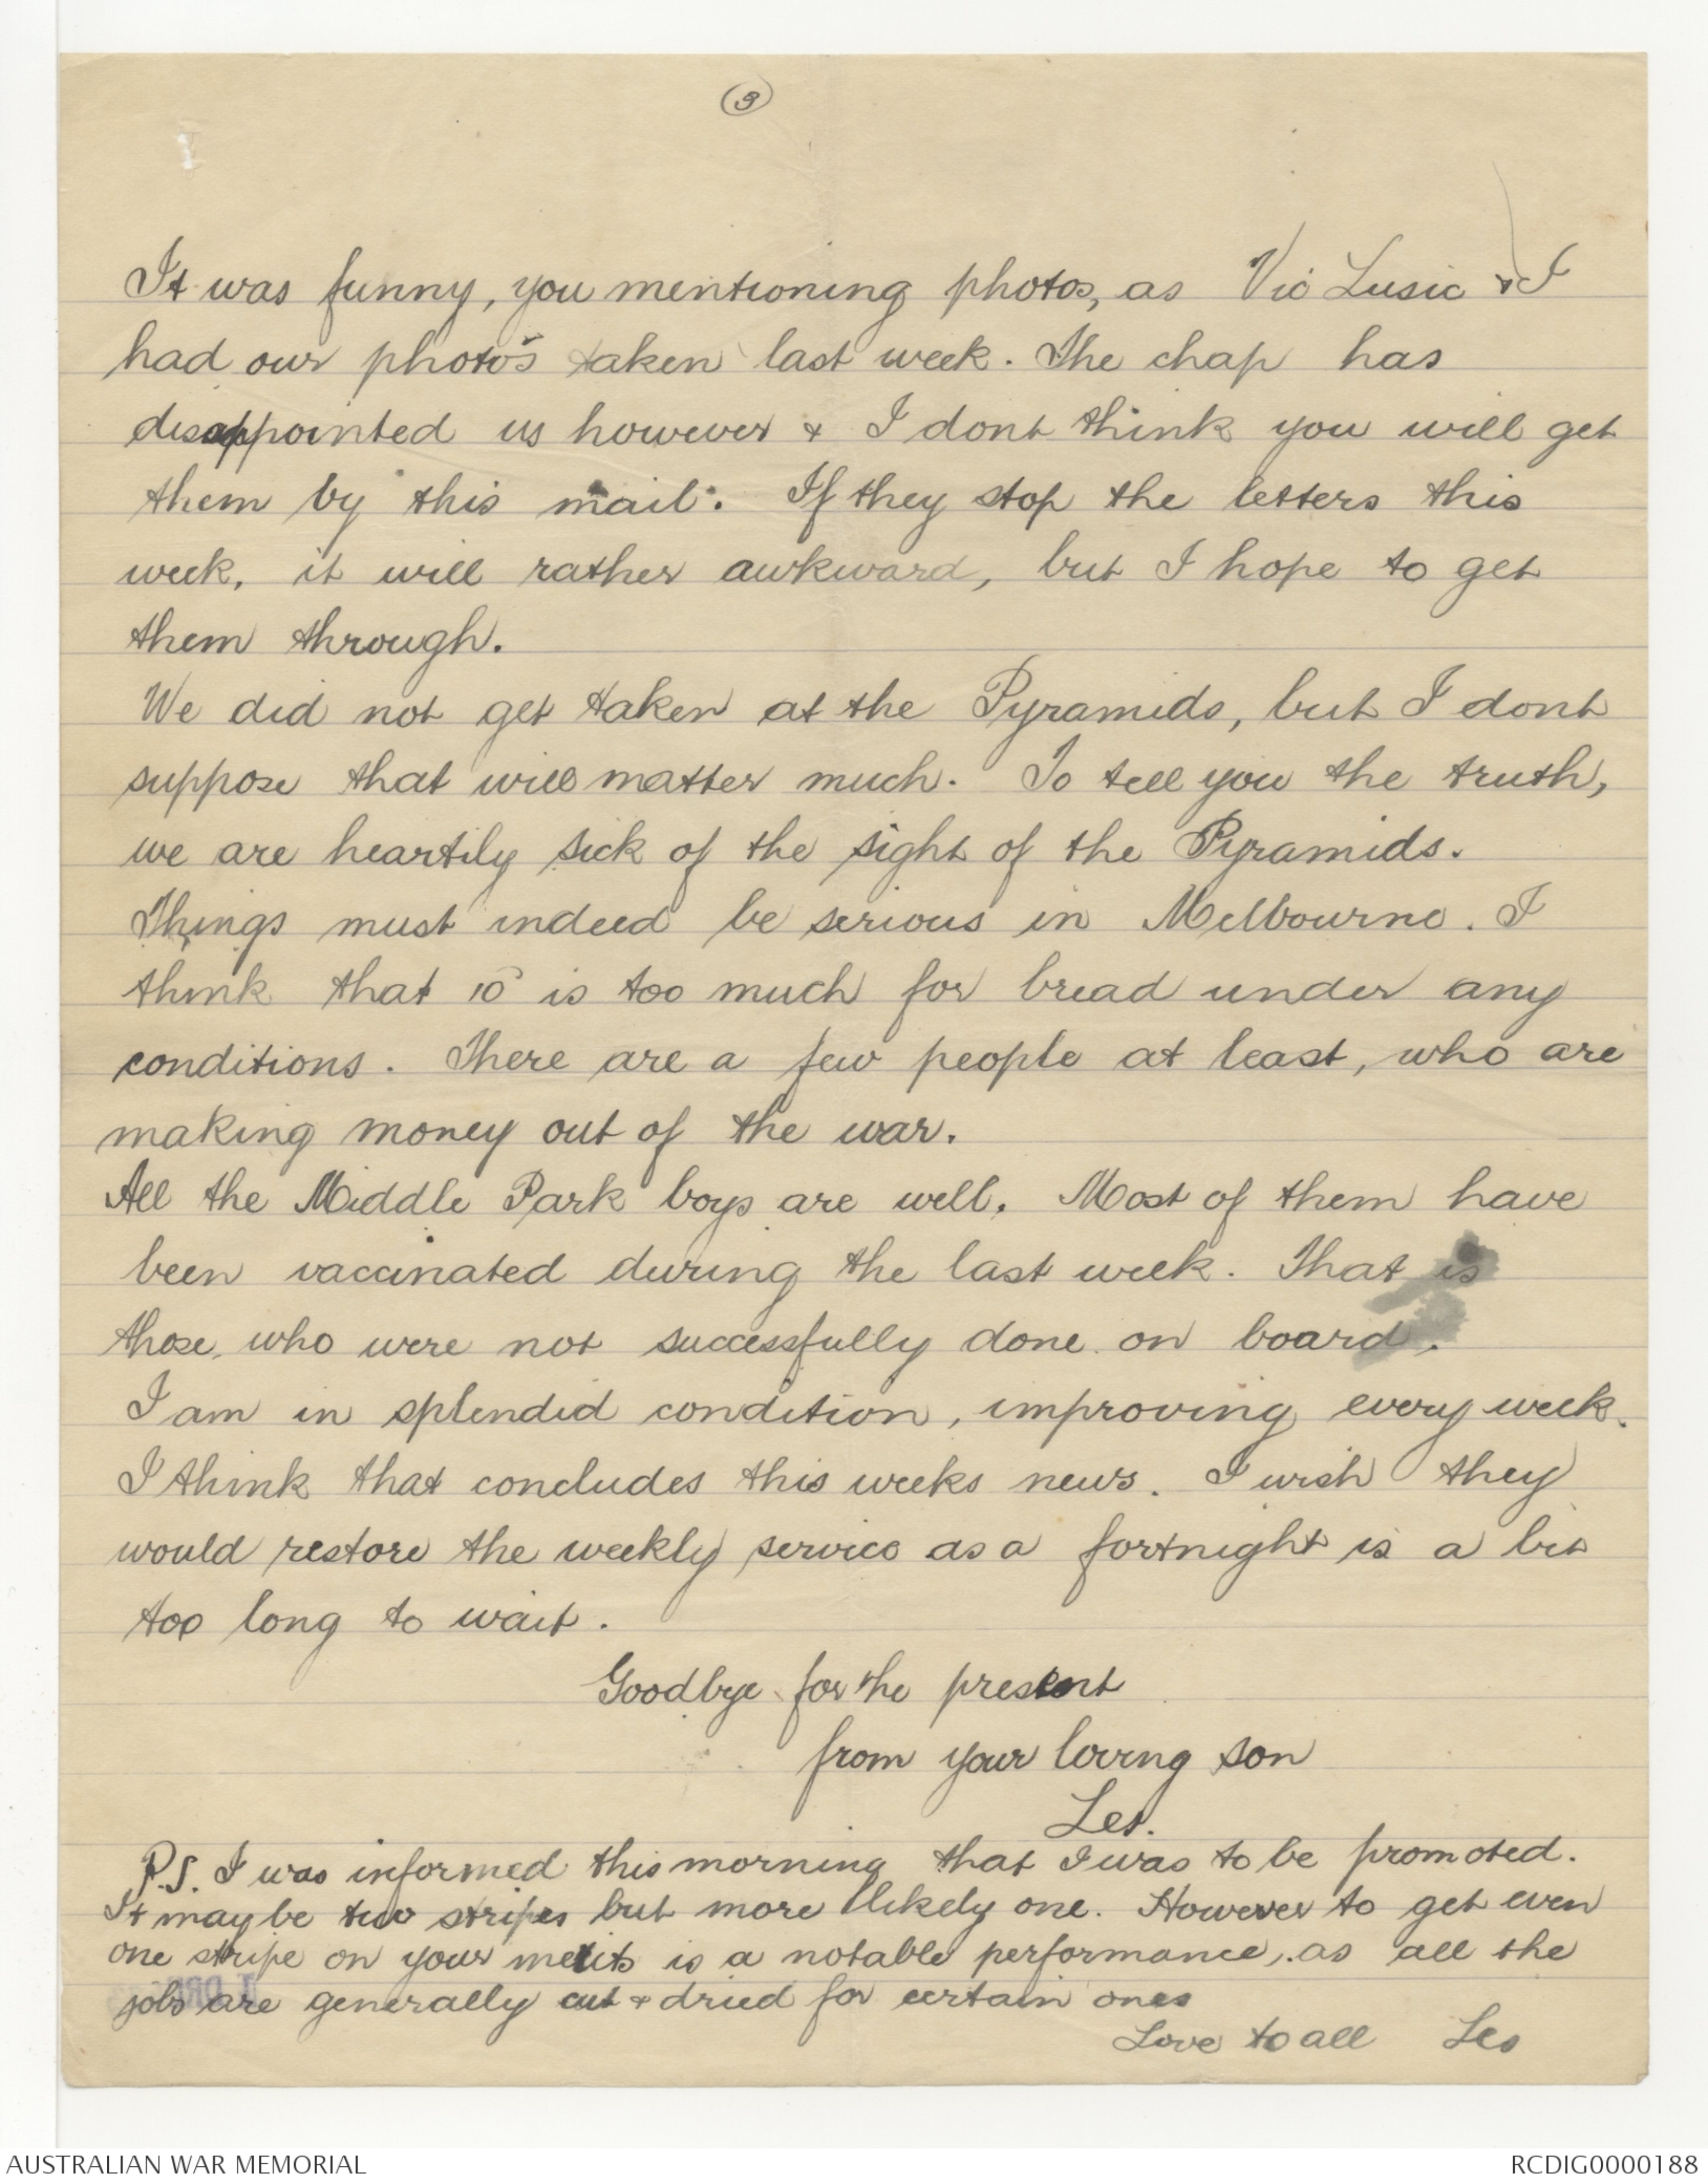 3
It was funny, you mentioning photos, as Vic Lusic & I
had our photo's taken last week. The chap has
disappointed us however & I dont think you will get
them by this mail. If they stop the letters this
week, it will rather awkward, but I hope to get
them through.
We did not get taken at the Pyramids, but I dont
suppose that will matter much. To tell you the truth,
we are heartily sick of the sight of the Pyramids.
Things must indeed be serious in Melbourne. I
think that 10 is too much for bread under any
conditions. There are a few people at least, who are
making money out of the war.
All the Middle Park boys are well. Most of them have
been vaccinated during the last week. That is
those, who were not successfully done on board.
I am in splendid condition, improving every week.
I think that concludes this weeks news. I wish they
would restore the weekly service as a fortnight is a bit
too long to wait.
Goodbye for the present
from your loving son
Les.
P.S. I was informed this morning that I was to be promoted.
It may be two stripes but more likely one. However to get even
one stripe on your merits is a notable performance, as all the
jobs are generally cut & dried for certain ones
Love to all Les
AUSTRALIAN WAR MEMORIAL
RCDIG0000188